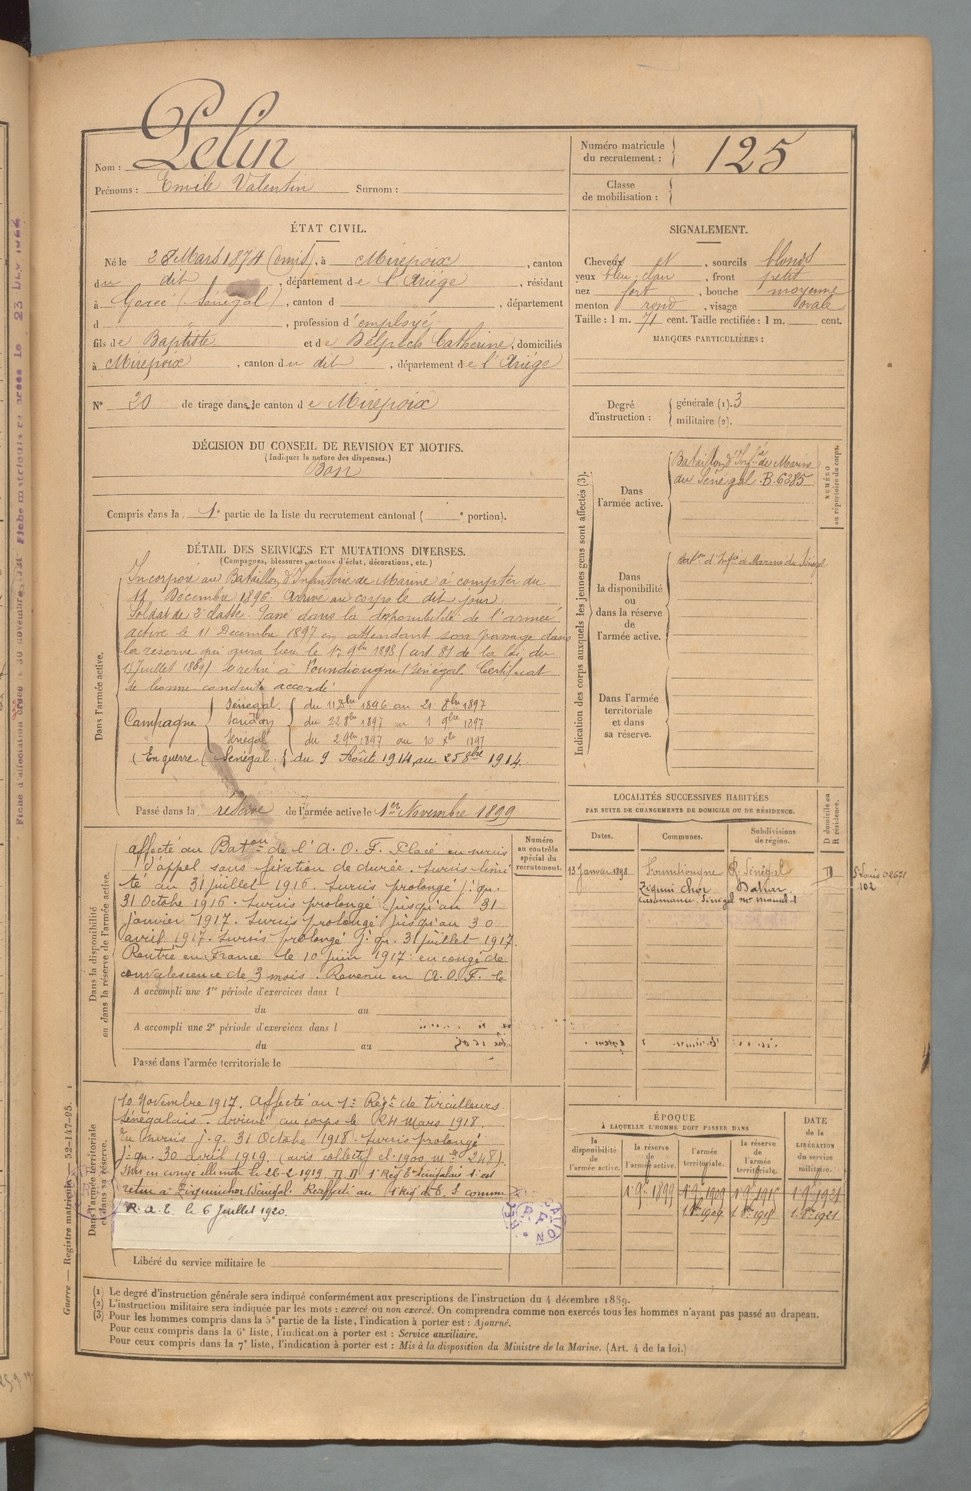 Nom : Pelin
Prénoms : Emile Valentin Surnom :
Numéro matricule du recrutement : 125
Classe de mobilisation :
ÉTAT CIVIL.
Né le 28 Mars 1874, à Mirepoix, canton
du dit, département de l'Ariège, résidant
à Gorée (Sénégal), canton d , département
d , profession d'employé
fils de Baptiste et de Belpech Catherine, domiciliés
à Mirepoix, canton du dit, département de l'Ariège
N° 20 de tirage dans le canton de Mirepoix
SIGNALEMENT.
Cheveux et , sourcils blonds
yeux bleu clair, front petit
nez fort, bouche moyenne
menton rond, visage ovale
Taille : 1 m. 71 cent. Taille rectifiée : 1 m. cent.
MARQUES PARTICULIÈRES :
Degré d'instruction : générale (1). 3
militaire (2).
DÉCISION DU CONSEIL DE REVISION ET MOTIFS.
(Indiquer la nature des dispenses.)
Bon
Compris dans la 1e partie de la liste du recrutement cantonal ( e portion).
DÉTAIL DES SERVICES ET MUTATIONS DIVERSES.
(Campagnes, blessures, actions d'éclat, décorations, etc.)
Dans l'armée active.
Incorporé au Bataillon d'Infanterie de Marine à compter du
11 Décembre 1896. Arrivé au corps le dit jour.
Soldat de 2e classe. Passé dans la disponibilité de l'armée
active le 11 Décembre 1897 en attendant son passage dans
la réserve qui aura lieu le 1er 9bre 1898 (art. 81 de la loi du
15 Juillet 1889) Se retire à Foundiougne (Sénégal. Certificat
de bonne conduite accordé.
Campagne
Sénégal du 11 Xbre 1896 au 21 8bre 1897
Soudan du 22 8bre 1897 au 1 9bre 1897
Sénégal du 2 9bre 1897 au 10 Xbre 1897
(En guerre Sénégal du 9 Août 1914 au 25 8bre 1914.
Passé dans la réserve de l'armée active le 1er Novembre 1899
Indication des corps auxquels les jeunes gens sont affectés (3).
NUMÉRO au répertoire du corps.
Dans l'armée active.
Bataillon d'Infrie de Marine
du Sénégal. B. 6285
Dans la disponibilité ou dans la réserve de l'armée active.
Bat.on d'Infie de Marine du Sénégal
Dans l'armée territoriale et dans sa réserve.
Dans la disponibilité ou dans la réserve de l'armée active.
Numéro au contrôle spécial du recrutement.
affecté au Baton de l'A. O. F. Placé en sursis
d'appel sans fixation de durée. Sursis limi
té au 31 juillet 1916. Sursis prolongé j. qu.
31 Octobre 1916. Sursis prolongé jusqu'au 31
janvier 1917. Sursis prolongé jusqu'au 30
avril 1917. Sursis prolongé j. qu. 31 juillet 1917.
Rentré en France le 10 juin 1917 : en congé de
convalescence de 3 mois. Revenu en A. O. F. le
A accompli une 1re période d'exercices dans l
du au
A accompli une 2e période d'exercices dans l
du au
Passé dans l'armée territoriale le
LOCALITÉS SUCCESSIVES HABITÉES
PAR SUITE DE CHANGEMENTS DE DOMICILE OU DE RÉSIDENCE.
Dates. Communes. Subdivisions de région. D domicile ou R résidence.
13 Janvier 1898 Foundiougne Sénégal D St Louis
Ziguinchor Dakar 102
Casamance. Sénégal
Dans l'armée territoriale et dans sa réserve.
10 Novembre 1917. Affecté au 1er Régt de tirailleurs
Sénégalais. Arrivé au corps le 24 Mars 1918.
En sursis j. q. 31 Octobre 1918. Sursis prolongé
j. qu. 30 avril 1919. (avis collectif n° 248).
Mis en congé illimité le 26-2-1919
retiré à Ziguinchor (Sénégal. Réaffecté au 1 Rég de T. S comme
R. a. t. le 6 Juillet 1920.
Libéré du service militaire le
ÉPOQUE
À LAQUELLE L'HOMME DOIT PASSER DANS
la disponibilité de l'armée active. la réserve de l'armée active. l'armée territoriale. la réserve de l'armée territoriale.
DATE de la LIBÉRATION du service militaire.
1 9 1899 1 9 1909 1 9 1915 1 9 1921
1 8bre 1909 1 8bre 1915 1 8bre 1921
(1) Le degré d'instruction générale sera indiqué conformément aux prescriptions de l'instruction du 4 décembre 1889.
(2) L'instruction militaire sera indiquée par les mots : exercé ou non exercé. On comprendra comme non exercés tous les hommes n'ayant pas passé au drapeau.
(3) Pour les hommes compris dans la 5e partie de la liste, l'indication à porter est : Ajourné.
Pour ceux compris dans la 6e liste, l'indication à porter est : Service auxiliaire.
Pour ceux compris dans la 7e liste, l'indication à porter est : Mis à la disposition du Ministre de la Marine. (Art. 4 de la loi.)
Guerre — Registre matricule. 52-147-95.